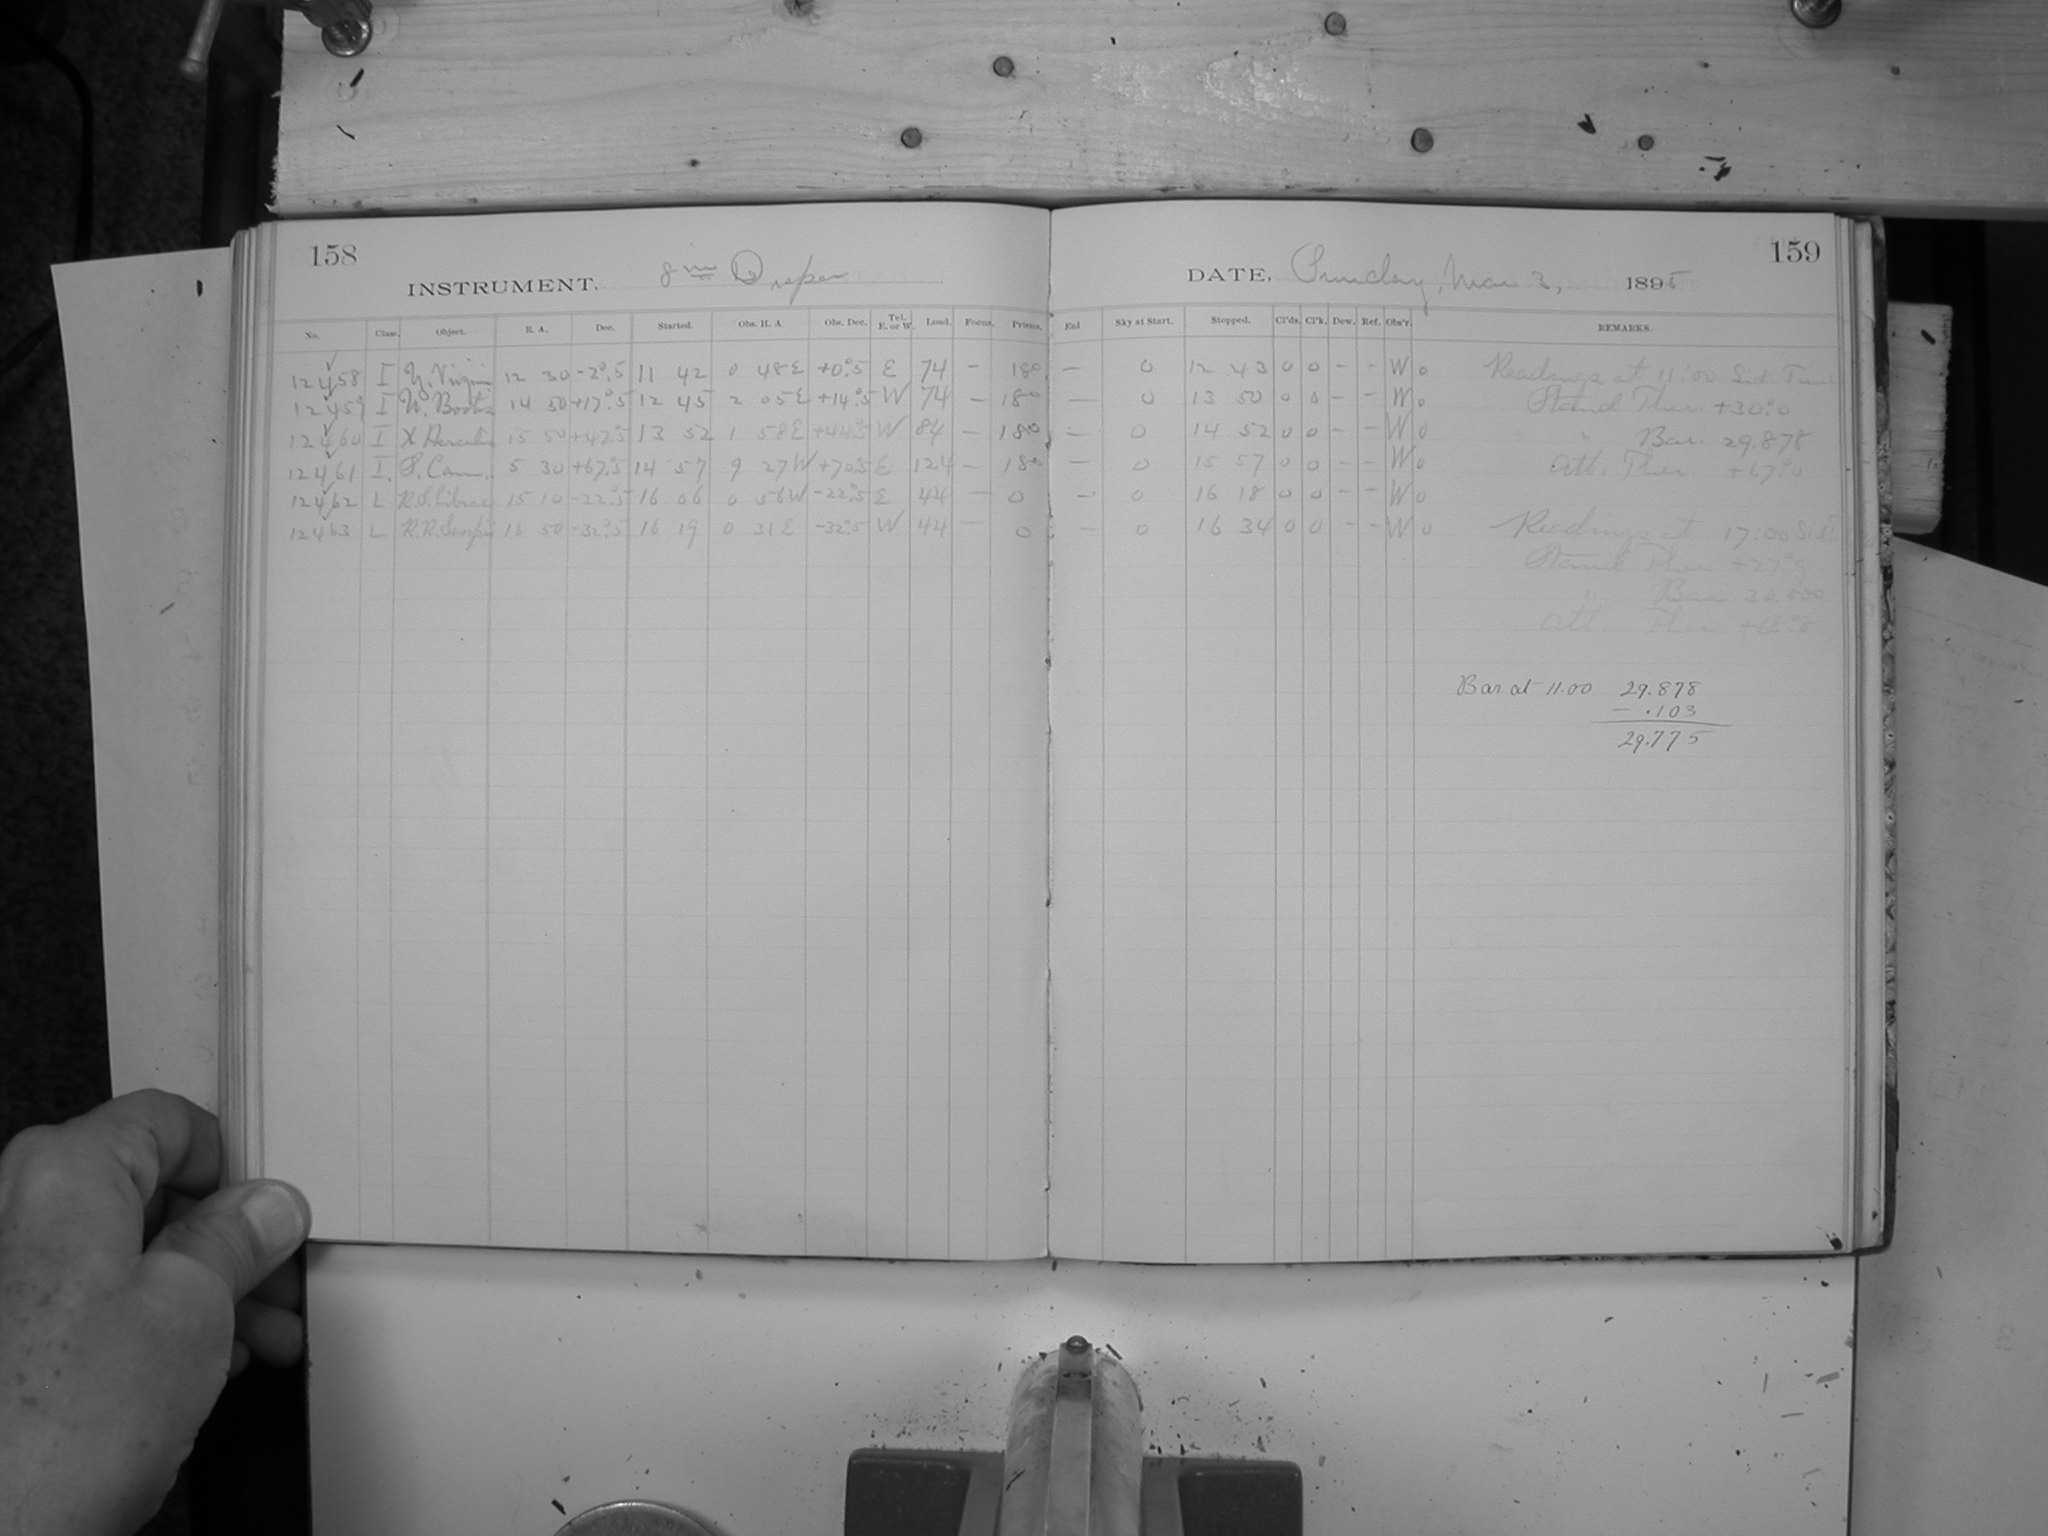 158
INSTRUMENT. 8 in Draper
No. Class. Object. R. A. Dec. Started. Obs. H. A. Obs. Dec. Tel. E. or W. Load. Focus. Prisms.
12458 I Y. Virginis 12 30 -2°.5 11 42 0 48E +0°.5 E 74 - 180
12459 I U. Bootis 14 50 +17°.5 12 45 2 05E +14°.5 W 74 - 180
12460 I X Herculis 15 50 +47°.5 13 52 1 58E +44°.5 W 84 - 180
12461 I. S. Cam. 5 30 +67°.5 14 57 9 27W +70°.5 E 124 - 180
12462 L R.S. Librae 15 10 -22°.5 16 06 0 56W -22°.5 E 44 - 0
12463 L R.R. Scorpii 16 50 -32°.5 16 19 0 31E -32°.5 W 44 - 0
159
DATE, Sunday, Mar 3, 1895
Sky at Start. Stopped. Cl'ds. Cl'k. Dew. Ref. Obs'r. REMARKS.
— 0 12 43 0 0 - - W 0 Readings at 11:00 Sid. Time
— 0 13 50 0 0 - - W 0 Stand Ther. +30°.0
— 0 14 52 0 0 - - W 0 " Bar. 29.878
— 0 15 57 0 0 - - W 0 Att. Ther. +67°.0
— 0 16 18 0 0 - - W 0
— 0 16 34 0 0 - - W 0 Readings at 17:00 Sid.
Stand Ther +27°.9
" Bar 30.000
Att. Ther +68°.8
Bar at 11.00 29.878
- .103
29.775